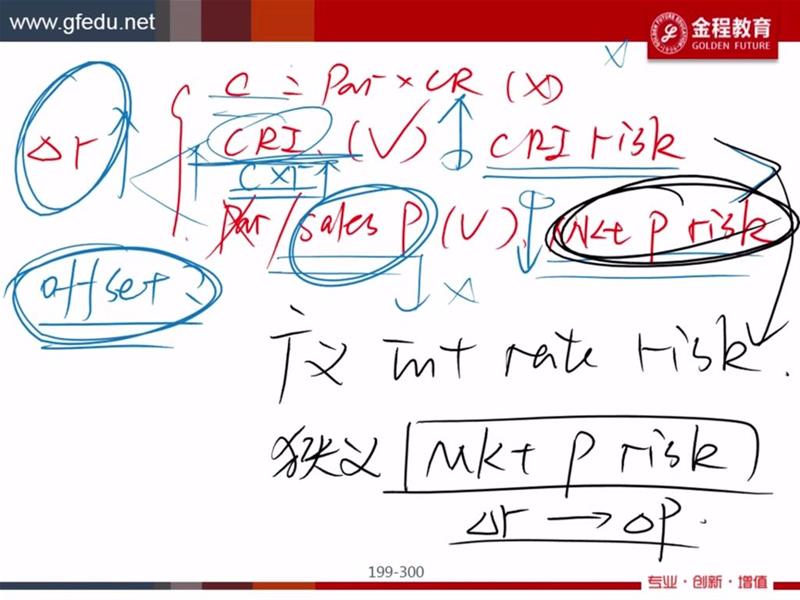 www.gfedu.net
金程教育
GOLDEN FUTURE
C = Par × CR (X)
Δr
CRI (V)
CRI risk
C×r
Par/sales P (V)
Mkt P risk
offset
广义 Int rate risk.
狭义 Mkt P risk
Δr → ΔP.
199-300
专业·创新·增值